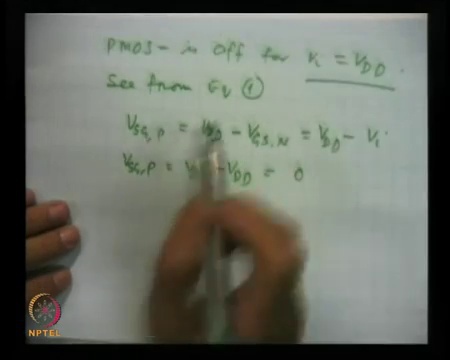 PMOS - is Off for Vi = VDD.
See from Eq ①
VSG,P = VDD - VGS,N = VDD - Vi
VSG,P = - VDD = 0
NPTEL